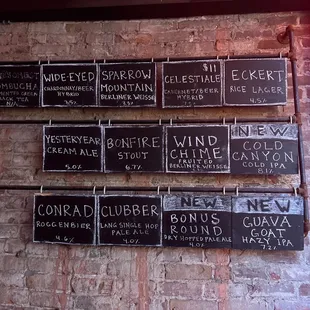 KOMBUCHA
BLACK TEA
N/A
WIDE-EYED
CHARDONNAY/BEER
HYBRID
SPARROW
MOUNTAIN
BERLINER WEISSE
$11
CELESTIALE
CABERNET/BEER
HYBRID
ECKERT
RICE LAGER
4.5%
YESTERYEAR
CREAM ALE
5.0%
BONFIRE
STOUT
6.7%
WIND
CHIME
FRUITED
BERLINER WEISSE
NEW
COLD
CANYON
COLD IPA
7.2%
CONRAD
ROGGENBIER
4.6%
CLUBBER
LANG SINGLE HOP
PALE ALE
4.0%
NEW
BONUS
ROUND
DRY HOPPED PALE ALE
NEW
GUAVA
GOAT
HAZY IPA
7.2%